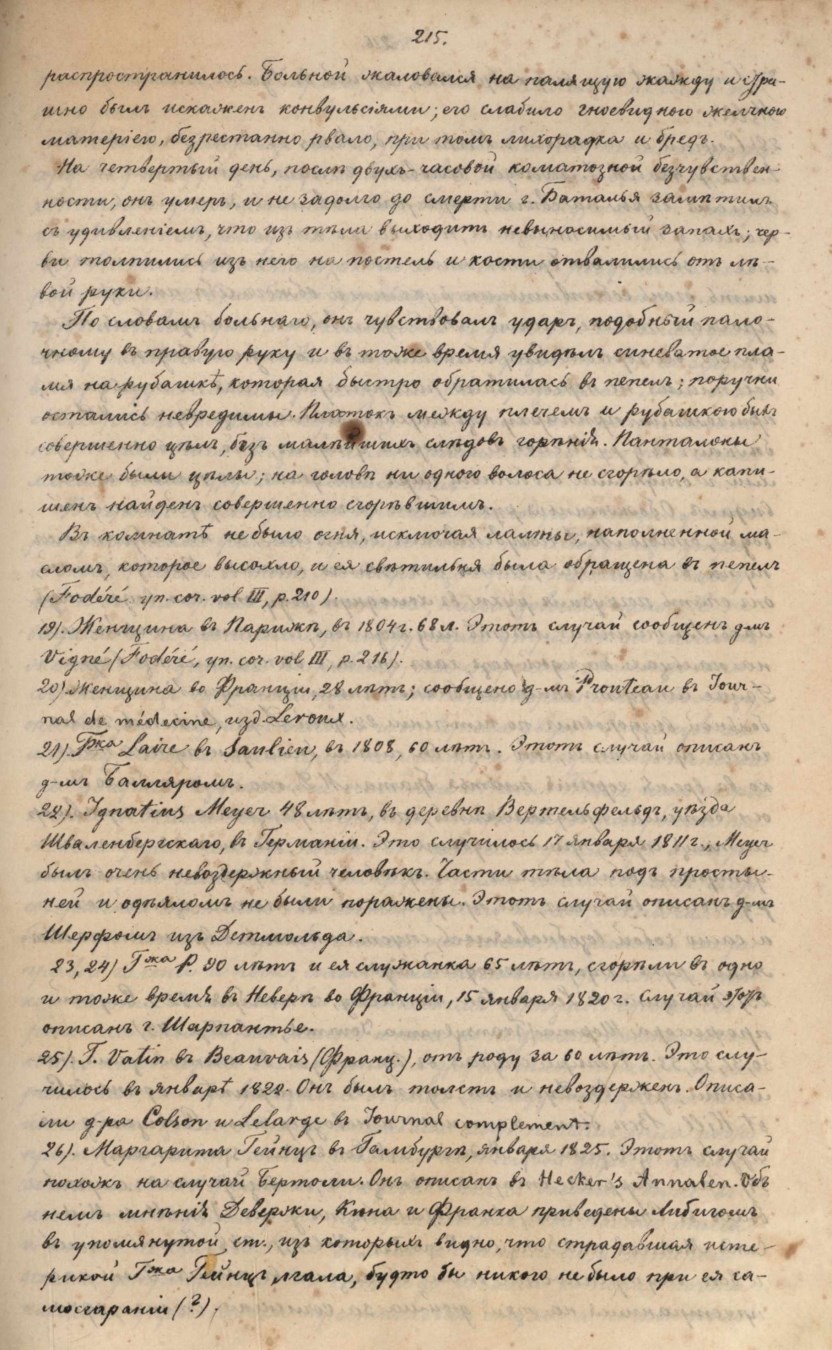 215.
распространилось. Больной жаловался на палящую жажду и стра-
шно былъ искаженъ конвульсіями; его слабило гноевидною желчною
матеріею, безрестанно рвало, при томъ лихорадка и бредъ.
На четвертый день, послѣ двухъ-часовой коматозной безчувствен-
ности, онъ умеръ, и не задолго до смерти г. Баталья замѣтилъ
съ удивленіемъ, что изъ тѣла выходитъ невыносимый запахъ; чер-
ви толпились изъ него на постель и ногти отвалились отъ лѣ-
вой руки.
По словамъ больнаго, онъ чувствовалъ ударъ, подобный пало-
чному въ правую руку и въ тоже время увидѣлъ синеватое пла-
мя на рубашкѣ, которая быстро обратилась въ пепелъ; поручни
остались невредимы. Платокъ между плечемъ и рубашкою былъ
совершенно цѣлъ, безъ малѣйшихъ слѣдовъ горѣнія. Панталоны
тоже были цѣлы; на головѣ ни одного волоса не сгорѣло, а капи-
шенъ найденъ совершенно сгорѣвшимъ.
Въ комнатѣ не было огня, исключая лампы, наполненной ма-
сломъ, которое высохло, и ея свѣтильня была обращена въ пепелъ
(Fodéré уп. соч. vol III, p. 210).
19). Женщина въ Парижѣ, въ 1804 г. 68 л. Этотъ случай сообщенъ д-мъ
Vigné (Fodéré, уп. соч. vol III, p. 216).
20) Женщина во Франціи, 28 лѣтъ; сообщено д-мъ Prouteau въ Jour-
nal de médecine, изд. Leroux.
21). Гжа Laire въ Saulieu, въ 1808, 60 лѣтъ. Этотъ случай описанъ
д-мъ Балляромъ.
22). Ignatius Meyer 48 лѣтъ, въ деревнѣ Вертельфельдъ, уѣзда
Шваленбергскаго, въ Германіи. Это случилось 17 января 1811 г., Meyer
былъ очень невоздержный человѣкъ. Части тѣла подъ просты-
ней и одѣяломъ не были поражены. Этотъ случай описанъ д-мъ
Шерфомъ изъ Детмольда.
23, 24) Гжа P. 90 лѣтъ и ея служанка 65 лѣтъ, сгорѣли въ одно
и тоже время въ Неверѣ во Франціи, 15 января 1820 г. Случай этотъ
описанъ г. Шарпантье.
25). Г. Vatin въ Beauvais (Франц.), отъ роду за 60 лѣтъ. Это слу-
чилось въ январѣ 1822. Онъ былъ толстъ и невоздерженъ. Описа-
ли д-ра Colson и Lelarge въ Journal complement.
26). Маргарита Гейнцъ въ Гамбургѣ, января 1825. Этотъ случай
похожъ на случай Бертоли. Онъ описанъ въ Hecker's Annalen. Объ
немъ мнѣнія Девержи, Кюна и Франка приведены Либигомъ
въ упомянутой ст., изъ которыхъ видно, что страдавшая исте-
рикой Гжа Гейнцъ лгала, будто бы никого не было при ея са-
мосгараніи (?).